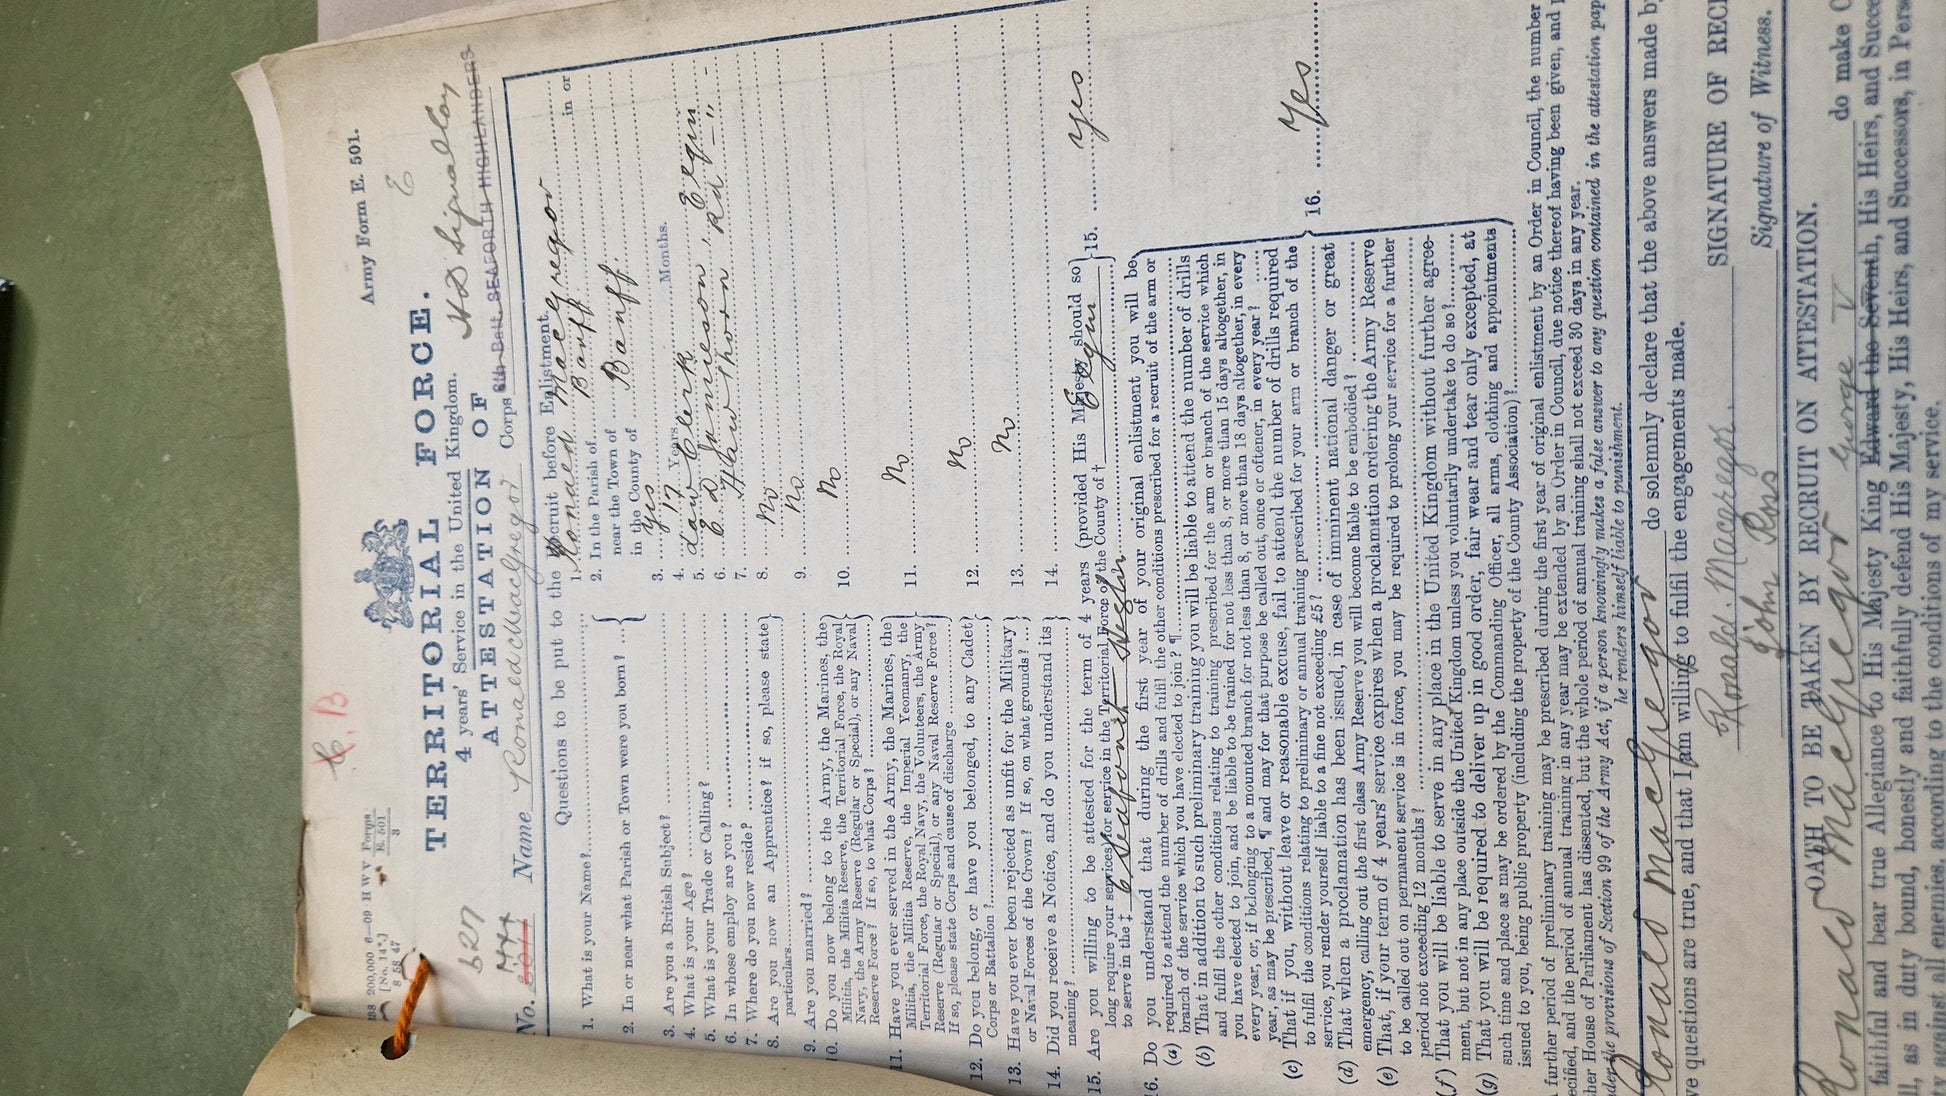 200,000 6—09 H W V Forms
[No. 14*.] E. 501
8 58 47 3
C. B
Army Form E. 501.
E
TERRITORIAL FORCE.
4 years' Service in the United Kingdom.
HD Signal Coy
527
ATTESTATION OF
No. Name Ronald MacGregor Corps 6th Batt. SEAFORTH HIGHLANDERS
Questions to be put to the Recruit before Enlistment.
1. What is your Name? 1. Ronald Macgregor
2. In or near what Parish or Town were you born? 2. In the Parish of Banff in or
near the Town of
in the County of Banff
3. Are you a British Subject? 3. Yes
4. What is your Age? 4. 17 Years Months.
5. What is your Trade or Calling? 5. Law Clerk
6. In whose employ are you? 6. E. D. Jameson, Elgin
7. Where do you now reside? 7. Hawthorn Rd —"—
8. Are you now an Apprentice? if so, please state 8. No
particulars
9. Are you married? 9. No
10. Do you now belong to the Army, the Marines, the 10. No
Militia, the Militia Reserve, the Territorial Force, the Royal
Navy, the Army Reserve (Regular or Special), or any Naval
Reserve Force? If so, to what Corps?
11. Have you ever served in the Army, the Marines, the 11. No
Militia, the Militia Reserve, the Imperial Yeomanry, the
Territorial Force, the Royal Navy, the Volunteers, the Army
Reserve (Regular or Special), or any Naval Reserve Force?
If so, please state Corps and cause of discharge
12. Do you belong, or have you belonged, to any Cadet 12. No
Corps or Battalion?
13. Have you ever been rejected as unfit for the Military 13. No
or Naval Forces of the Crown? If so, on what grounds?
14. Did you receive a Notice, and do you understand its 14.
meaning?
15. Are you willing to be attested for the term of 4 years (provided His Majesty should so 15. Yes
long require your services) for service in the Territorial Force of the County of † Elgin
to serve in the ‡ 6 Seaforth Highrs
16. Do you understand that during the first year of your original enlistment you will be 16. Yes
required to attend the number of drills and fulfil the other conditions prescribed for a recruit of the arm or
branch of the service which you have elected to join? ¶
(a) That in addition to such preliminary training you will be liable to attend the number of drills
and fulfil the other conditions relating to training prescribed for the arm or branch of the service which
you have elected to join, and be liable to be trained for not less than 8, or more than 15 days altogether, in
every year, or, if belonging to a mounted branch for not less than 8, or more than 18 days altogether, in every
year, as may be prescribed, ¶ and may for that purpose be called out, once or oftener, in every year?
(c) That if you, without leave or reasonable excuse, fail to attend the number of drills required
to fulfil the conditions relating to preliminary or annual training prescribed for your arm or branch of the
service, you render yourself liable to a fine not exceeding £5?
(d) That when a proclamation has been issued, in case of imminent national danger or great
emergency, calling out the first class Army Reserve you will become liable to be embodied?
(e) That, if your term of 4 years' service expires when a proclamation ordering the Army Reserve
to be called out on permanent service is in force, you may be required to prolong your service for a further
period not exceeding 12 months?
(f) That you will be liable to serve in any place in the United Kingdom without further agree-
ment, but not in any place outside the United Kingdom unless you voluntarily undertake to do so?
(g) That you will be required to deliver up in good order, fair wear and tear only excepted, at
such time and place as may be ordered by the Commanding Officer, all arms, clothing and appointments
issued to you, being public property (including the property of the County Association)?
further period of preliminary training may be prescribed during the first year of original enlistment by an Order in Council, the number
ecified, and the period of annual training in any year may be extended by an Order in Council, due notice thereof having been given, and
her House of Parliament has dissented, but the whole period of annual training shall not exceed 30 days in any year.
nder the provisions of Section 99 of the Army Act, if a person knowingly makes a false answer to any question contained in the attestation pap
he renders himself liable to punishment.
Ronald MacGregor do solemnly declare that the above answers made by
ve questions are true, and that I am willing to fulfil the engagements made.
Ronald. Macgregor. SIGNATURE OF REC
John Ross Signature of Witness.
OATH TO BE TAKEN BY RECRUIT ON ATTESTATION.
Ronald MacGregor George V do make O
faithful and bear true Allegiance to His Majesty King Edward the Seventh, His Heirs, and Succe
ll, as in duty bound, honestly and faithfully defend His Majesty, His Heirs, and Successors, in Pers
ty against all enemies, according to the conditions of my service.